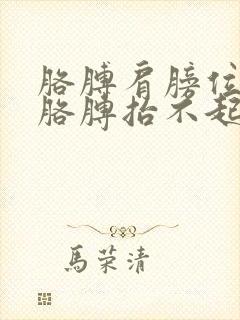 胳膊肩膀位
胳膊抬不起
馬荣清